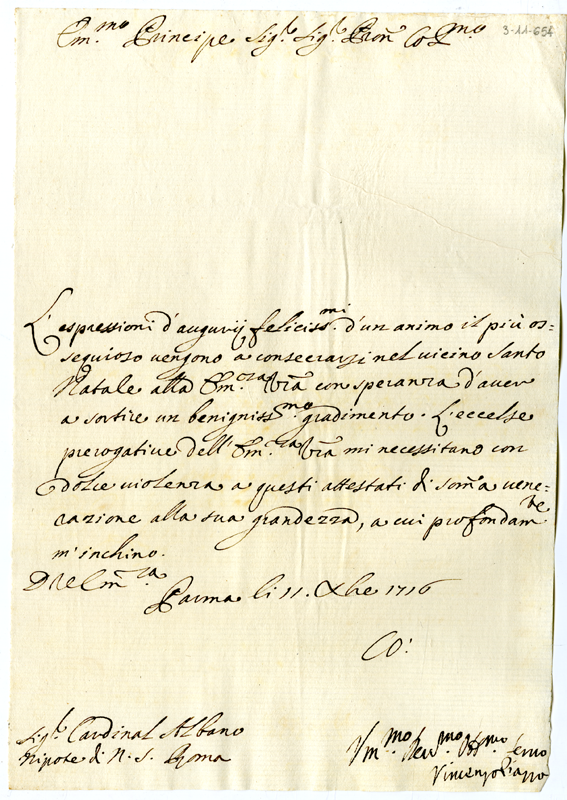 Em.mo Principe Sig.r Sig.r Pron Col.mo
3-11-654
L'espressioni d'augurij feliciss.mi d'un animo il più os=
sequioso vengono a consecrarsi nel uicino Santo
Natale alla Em.za Vra con speranza d'auer
a sortire un benigniss.mo gradimento. L'eccelse
prerogatiue dell'Em.za Vra mi necessitano con
dolce uiolenza a questi attestati di som̃a uene=
razione alla sua grandezza, a cui profondam.te
m'inchino.
D V Em.za
Parma li 11. Xbre 1716
Sig.r Cardinal Albano
Nipote di N. S. Roma
Vm.mo Deu.mo Obb.mo Seruo
Vincenzo Piazza